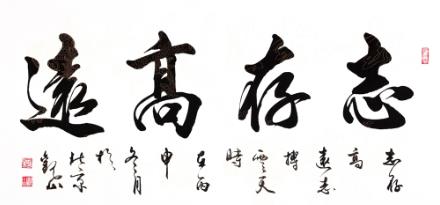 志存高遠
志存
高
遠志
搏
雲天
時
在丙
申
冬月
於
北京